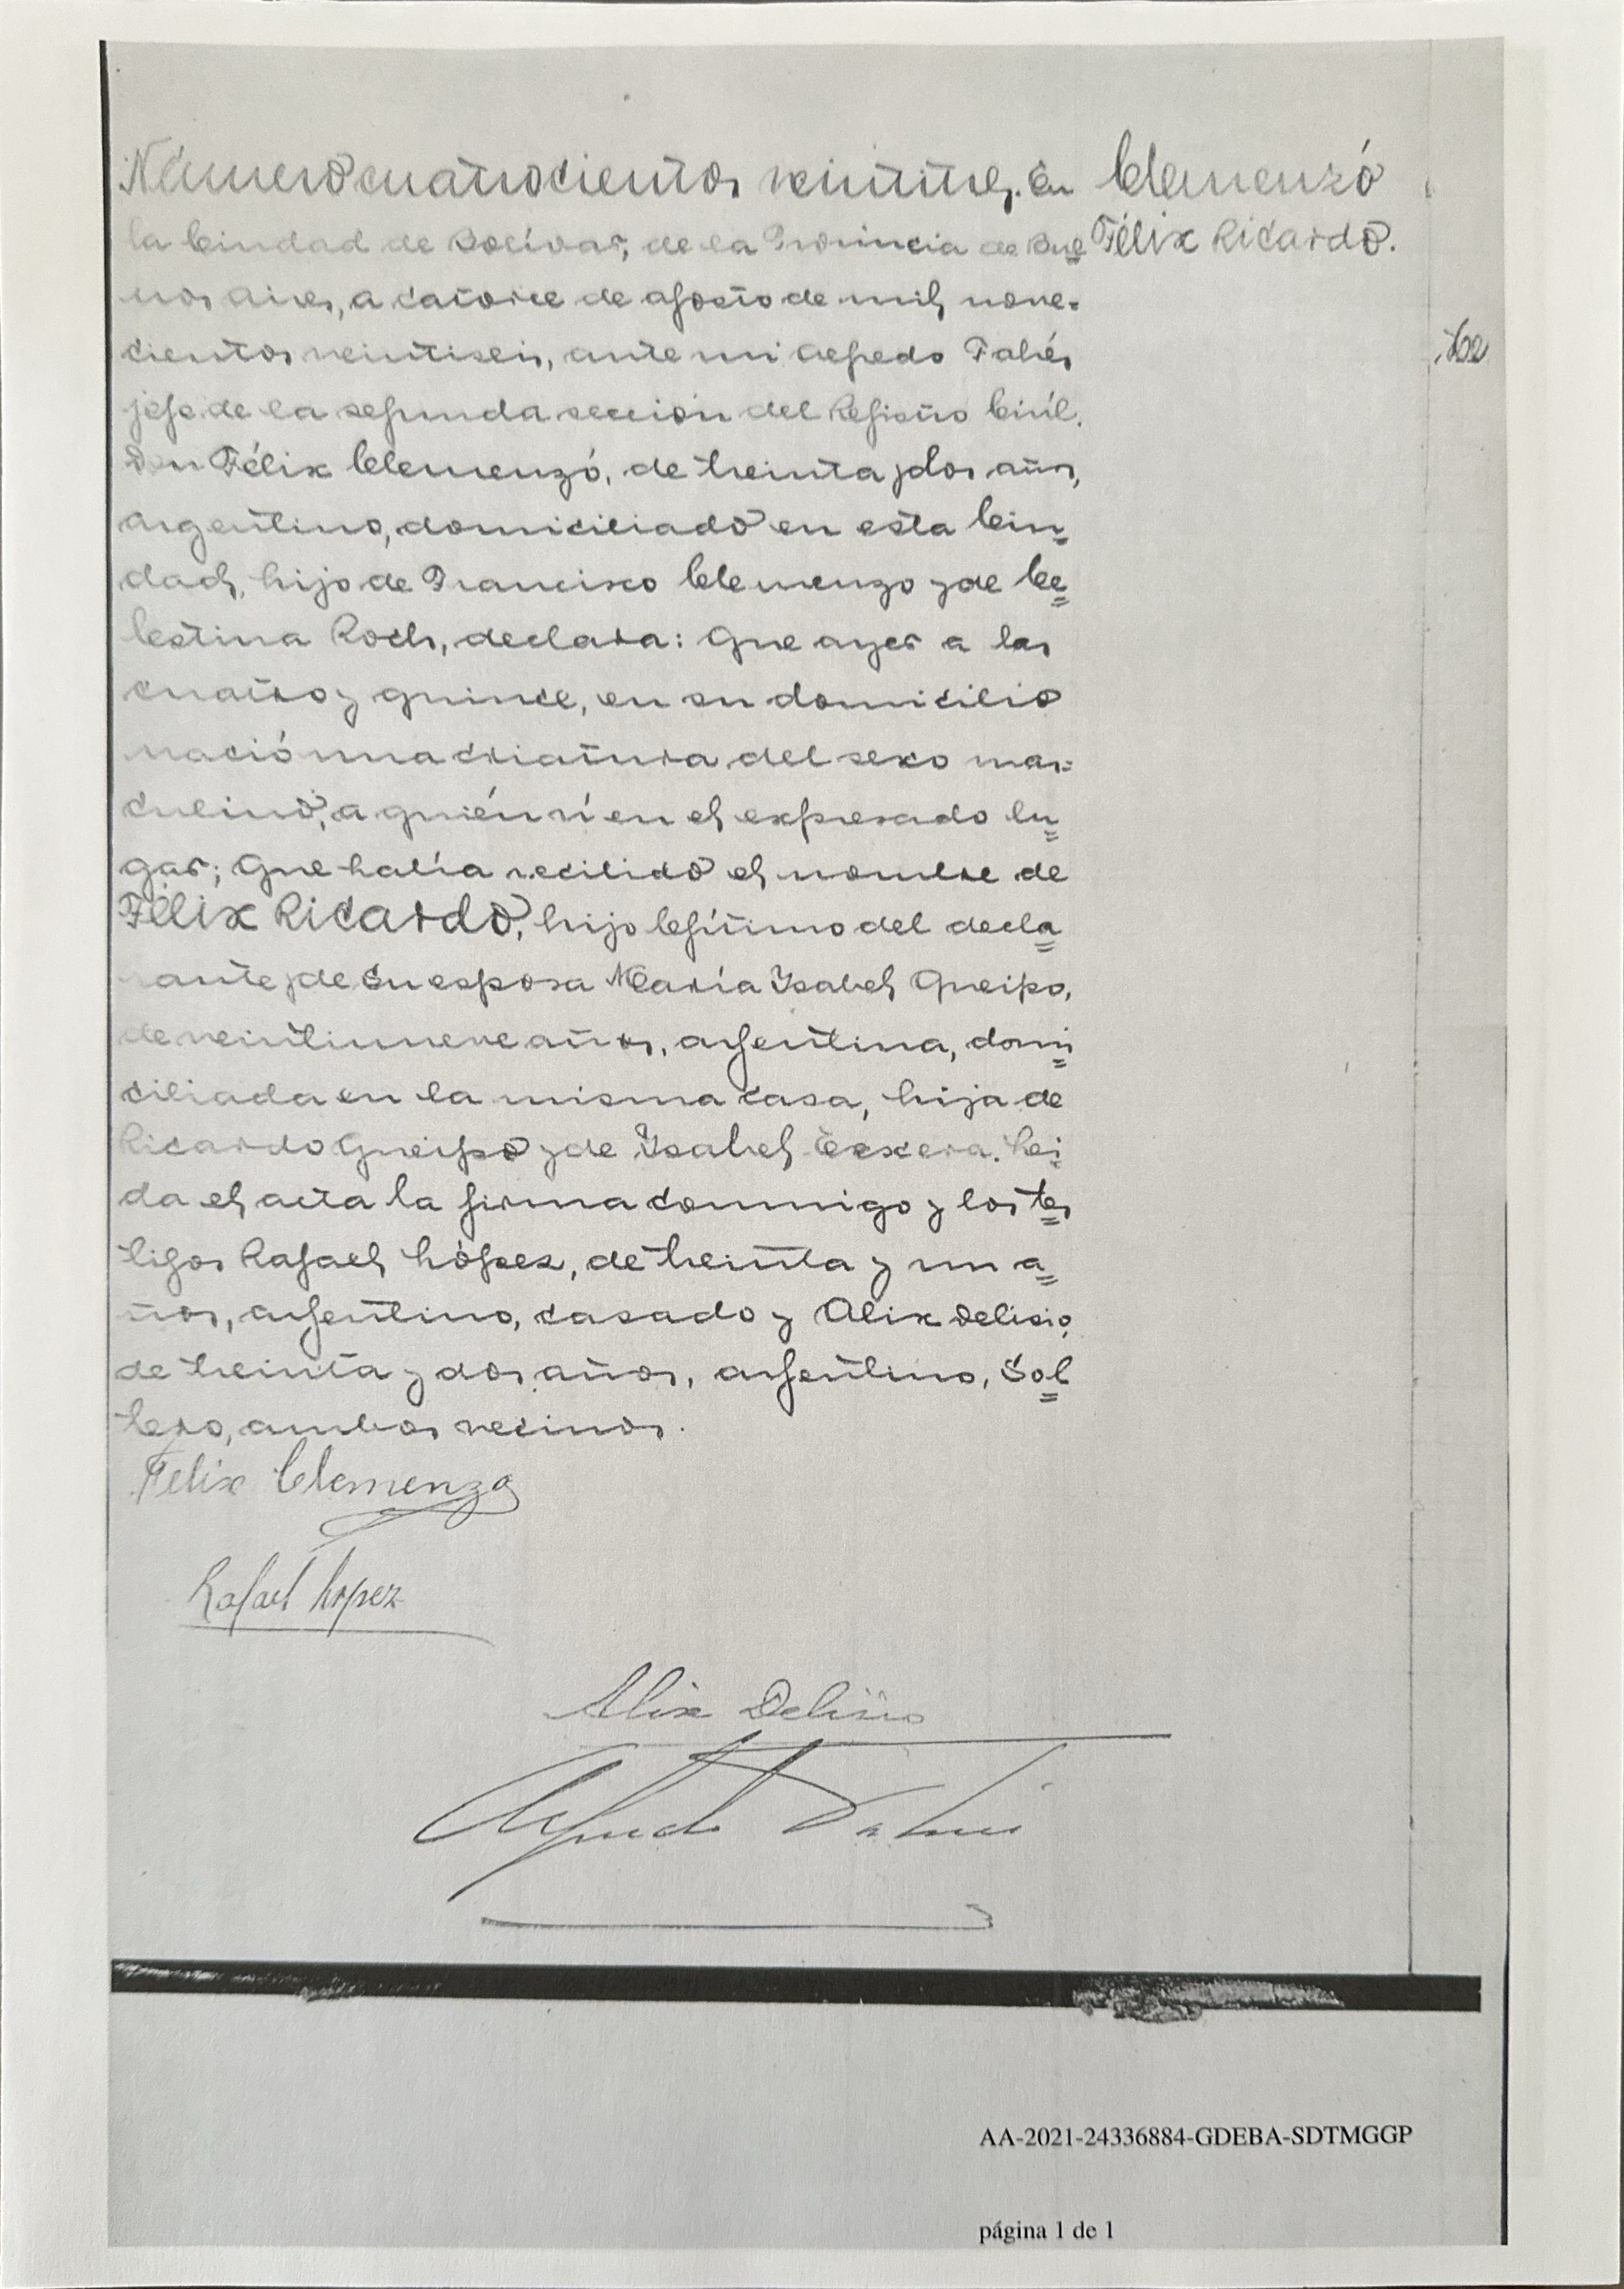 Número cuatrocientos veintitres. En
la Ciudad de Bolívar, de la Provincia de Bue
nos Aires, a catorce de agosto de mil nove-
cientos veintiseis, ante mi Alfredo
jefe de la segunda sección del Registro Civil.
Don Félix Clemenzó, de treinta y dos años,
argentino, domiciliado en esta Ciu
dad, hijo de Francisco Clemenzo y de Ce
lestina Roch, declara: Que ayer a las
cuatro y quince, en su domicilio
nació una criatura del sexo mas-
culino, a quién ví en el expresado lu
gar; Que había recibido el nombre de
Félix Ricardo, hijo legítimo del decla
rante y de su esposa María Ysabel Queipo,
de veintinueve años, argentina, domi
ciliada en la misma casa, hija de
Ricardo Queipo y de Ysabel. Lei
da el acta la firma conmigo y los tes
tigos Rafael López, de treinta y un a
ños, argentino, casado y Alix Delisio,
de treinta y dos años, argentino, sol
tero, ambos vecinos.
Clemenzó
Félix Ricardo.
Felix Clemenzo
Rafael Lopez
Alix Delisio
Alfredo
AA-2021-24336884-GDEBA-SDTMGGP
página 1 de 1